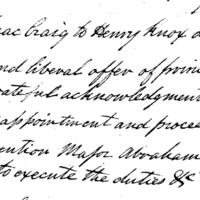 aac Craig to Henry Knox a
nd liberal offer of provi
ateful acknowledgment
appointment and procee
ention Major Abraham
to execute the duties &c